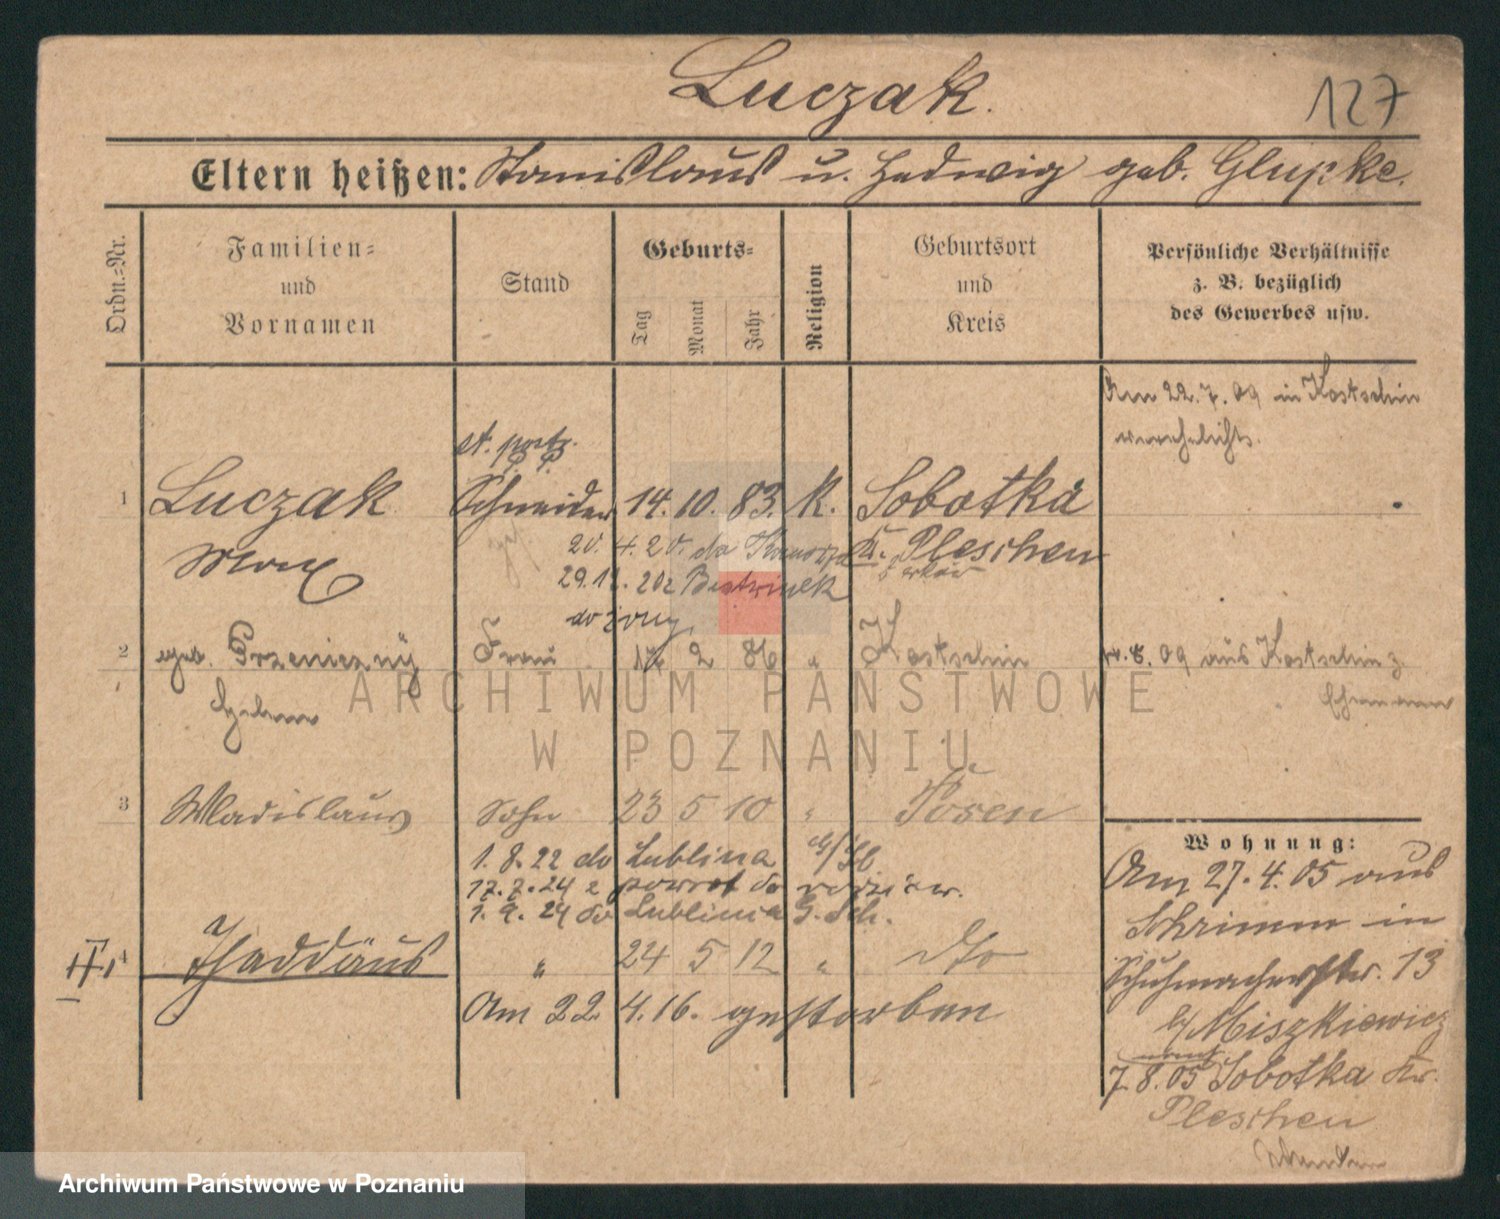 Luczak.
127
Eltern heißen: Stanislaus u. Hedwig geb. Glupke.
Ordn.=Nr.
Familien=
und
Vornamen
Stand
Geburts=
Tag
Monat
Jahr
Religion
Geburtsort
und
Kreis
Persönliche Verhältnisse
z. B. bezüglich
des Gewerbes usw.
Am 22.7.09 in Kostschin
verehelicht.
1 Luczak Schneider 14. 10. 83. K. Sobotka
Max
Kr. Pleschen
20. 4. 20. do
29.12. 20 z
do żony
2 geb. Pszeniczny Frau 2 86 " Kostschin
09 aus Kostschin z.
Ehemann
3 Wladislaus Sohn 23 5 10 " Posen
1. 8. 22 do Lublina
17. 7. 24 z powrot do
1. 9. 24 do Lublina G. Sch.
4 Thaddäus " 24 5 12 " dto
Am 22. 4. 16. gestorben
Wohnung:
Am 27. 4. 05 aus
Schrimm in
Schuhmacherstr. 13
b/ Miszkiewicz
7. 8. 05 Sobotka Kr.
Pleschen
ARCHIWUM PAŃSTWOWE
W POZNANIU
Archiwum Państwowe w Poznaniu